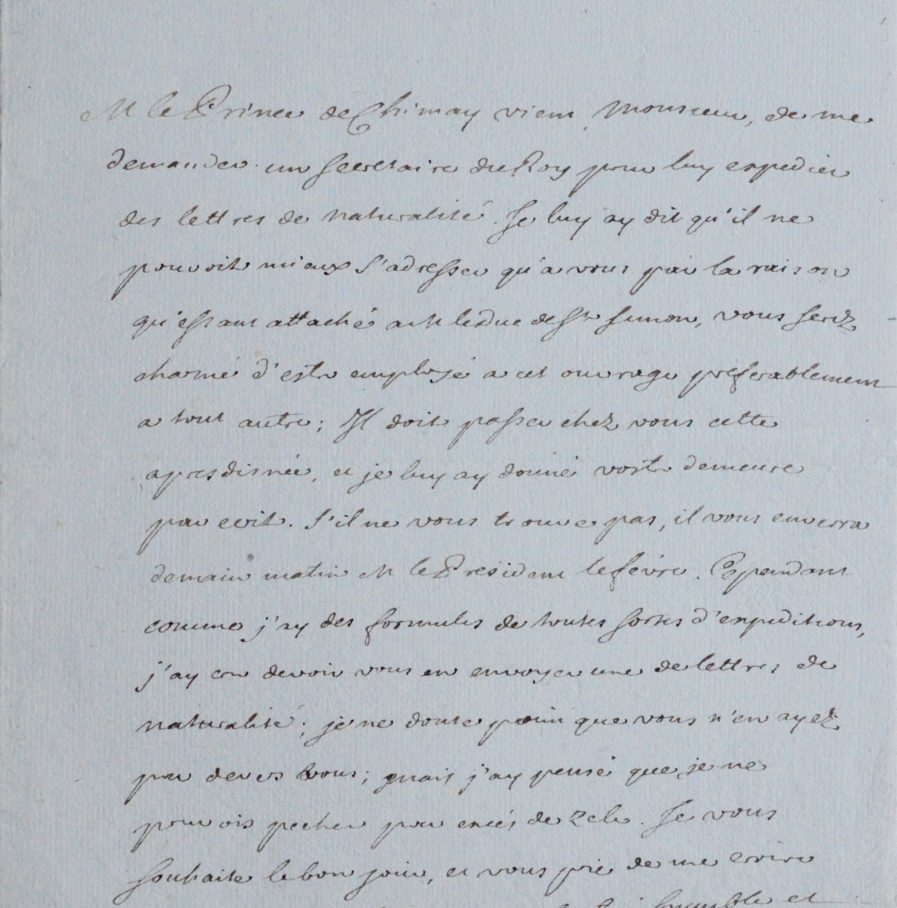 M le Prince de Chimay vient, Monsieur, de me
demander un secretaire du Roy pour luy expedier
des lettres de naturalité. Je luy ay dit qu'il ne
pouvoit mieux s'adresser qu'a vous par la raison
qu'estant attaché a M le Duc de St Simon, vous seriez
charmé d'estre employé a cet ouvrage preferablement
a tout autre; Il doit passer chez vous cette
apresdisnée, et je luy ay donné vostre demeure
par ecrit. S'il ne vous trouve pas, il vous enverra
demain matin M le President le févre. Cependant
comme j'ay des formules de toutes sortes d'expeditions,
j'ay cru devoir vous en envoyer une de lettres de
naturalité; je ne doute point que vous n'en ayez
par devers vous; mais j'ay pensé que je ne
pouvois pecher par excés de zele. Je vous
souhaite le bon jour, et vous prie de me croire
humble et